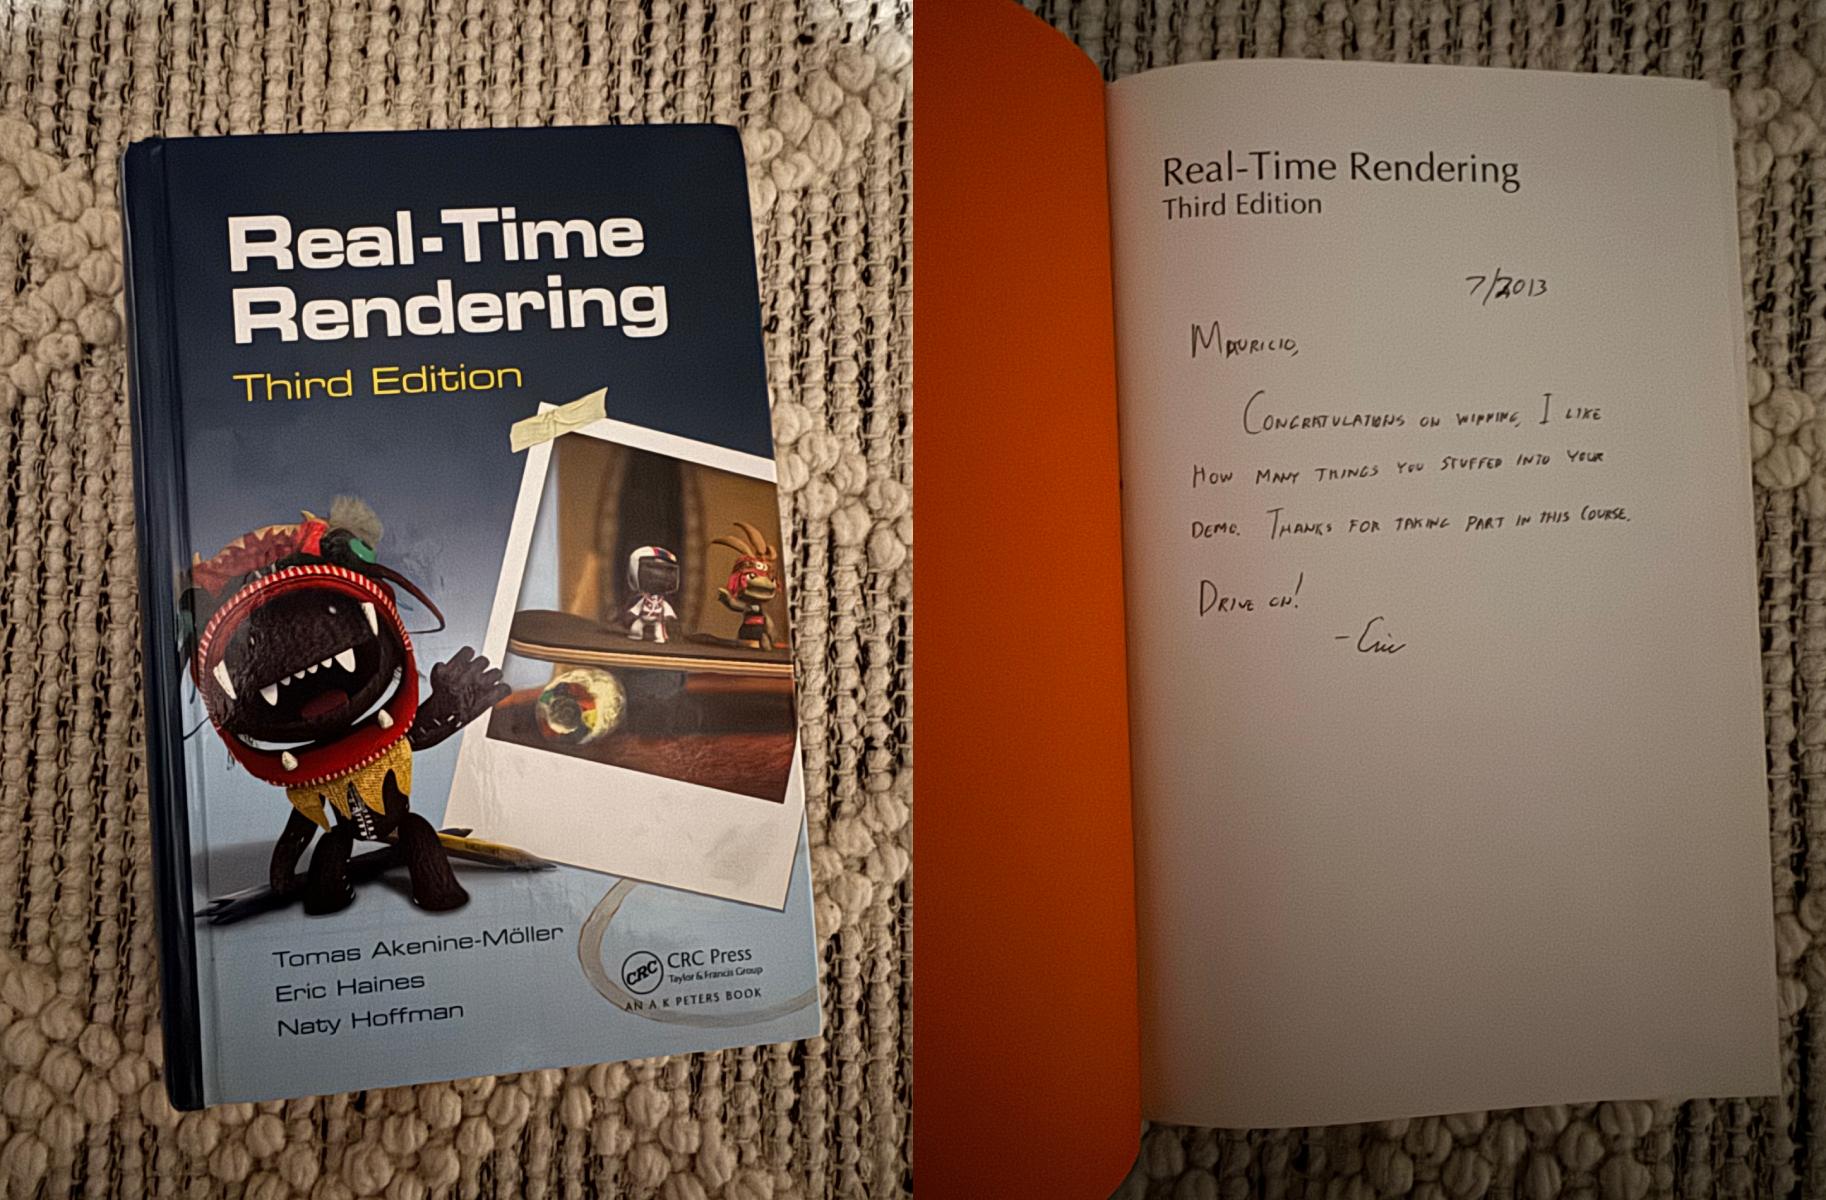 Real-Time
Rendering
Third Edition
Tomas Akenine-Möller
Eric Haines
Naty Hoffman
CRC
CRC Press
Taylor & Francis Group
AN A K PETERS BOOK
Real-Time Rendering
Third Edition
7/2013
MAURICIO,
CONGRATULATIONS ON WINNING, I LIKE
HOW MANY THINGS YOU STUFFED INTO YOUR
DEMO. THANKS FOR TAKING PART IN THIS COURSE.
DRIVE ON!
- Eric